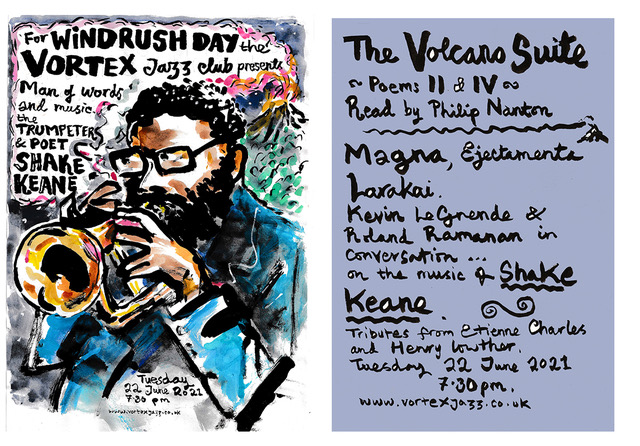 For WINDRUSH DAY the
VORTEX Jazz club presents
Man of words
and music.
the
TRUMPETERS
& POET
SHAKE
KEANE
Tuesday
22 June 2021
7.30 pm
www.vortexjazz.co.uk
The Volcano Suite
~ Poems II & IV ~
Read by Philip Nanton
Magna, Ejectamenta
Larakai.
Kevin Le Grende &
Roland Ramanan in
Conversation ...
on the music of Shake
Keane.
Tributes from Etienne Charles
and Henry Lowther.
Tuesday 22 June 2021
7.30 pm.
www.vortexjazz.co.uk